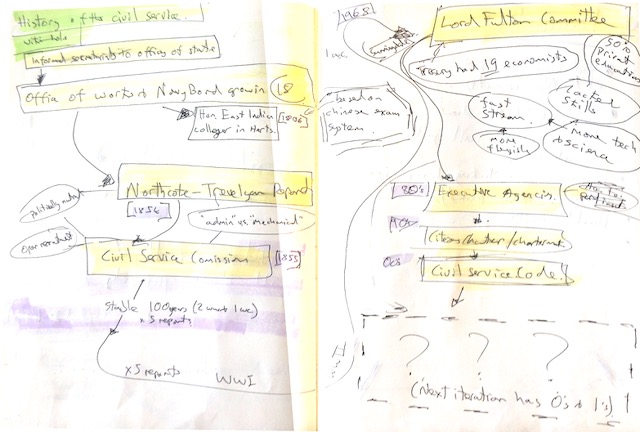 History of the civil service.
wiki help
Informal secretariats to offices of state
Office of works & Navy Board growin 18
Hon. East Indian
college in Herts.
[1806]
Northcote-Trevelyan Report
[1854]
politically neutral
open recruitment
"admin" vs. "mechanical"
Civil Service Comission
[1855]
stable 100 years (2 wars 1 wc)
x 5 reports
x 5 reports WWI
1968
Lord Fulton Committee
Treasury had 19 economists
50%
private
education
based on
chinese exam
system.
lacked
skills
fast
stream.
more
flexibly
more tech
& science
80's
Executive Agencies.
90s
Citizens charter / chartermark
00s
Civil service Code.
? ? ?
(Next iteration has 0's & 1's)